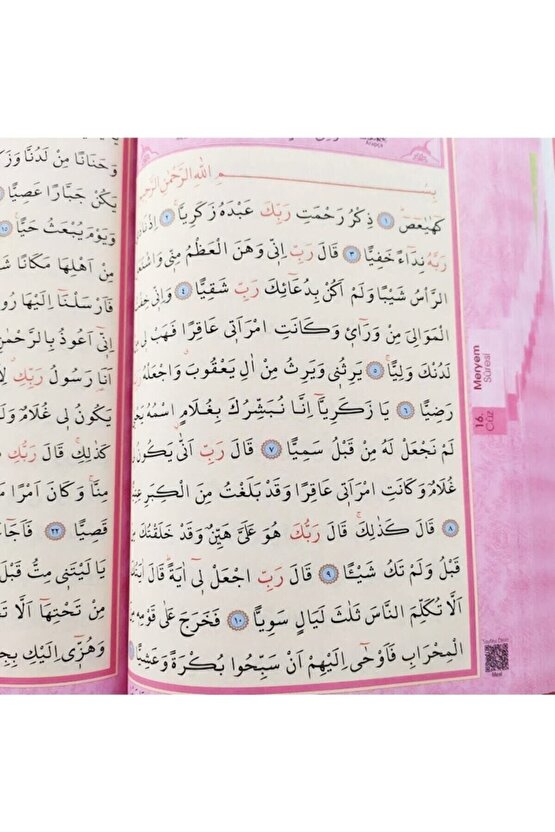 بِسْمِ اللّٰهِ الرَّحْمٰنِ الرَّحِيمِ
كٓهٰيٰعٓصٓ ۝١ ذِكْرُ رَحْمَتِ رَبِّكَ عَبْدَهُ زَكَرِيَّاۚ ۝٢ اِذْ نَادٰى
رَبَّهُ نِدَٓاءً خَفِيًّا ۝٣ قَالَ رَبِّ اِنّ۪ي وَهَنَ الْعَظْمُ مِنّ۪ي وَاشْتَعَلَ
الرَّأْسُ شَيْبًا وَلَمْ اَكُنْ بِدُعَٓائِكَ رَبِّ شَقِيًّا ۝٤ وَاِنّ۪ي خِفْتُ
الْمَوَالِيَ مِنْ وَرَٓاء۪ي وَكَانَتِ امْرَاَت۪ي عَاقِرًا فَهَبْ ل۪ي
لَدُنْكَ وَلِيًّاۙ ۝٥ يَرِثُن۪ي وَيَرِثُ مِنْ اٰلِ يَعْقُوبَۗ وَاجْعَلْهُ رَبِّ
رَضِيًّا ۝٦ يَا زَكَرِيَّٓا اِنَّا نُبَشِّرُكَ بِغُلَامٍۨ اسْمُهُ يَحْيٰىۙ
لَمْ نَجْعَلْ لَهُ مِنْ قَبْلُ سَمِيًّا ۝٧ قَالَ رَبِّ اَنّٰى يَكُونُ
غُلَامٌ وَكَانَتِ امْرَاَت۪ي عَاقِرًا وَقَدْ بَلَغْتُ مِنَ الْكِبَرِ عِتِيًّا
۝٨ قَالَ كَذٰلِكَۚ قَالَ رَبُّكَ هُوَ عَلَيَّ هَيِّنٌ وَقَدْ خَلَقْتُكَ مِنْ
قَبْلُ وَلَمْ تَكُ شَيْـًٔا ۝٩ قَالَ رَبِّ اجْعَلْ ل۪ٓي اٰيَةًۜ قَالَ اٰيَتُكَ
اَلَّا تُكَلِّمَ النَّاسَ ثَلٰثَ لَيَالٍ سَوِيًّا ۝١٠ فَخَرَجَ عَلٰى قَوْمِه۪ مِنَ
الْمِحْرَابِ فَاَوْحٰٓى اِلَيْهِمْ اَنْ سَبِّحُوا بُكْرَةً وَعَشِيًّا
Meryem
Sûresi
16.
Cüz
Meal
وَحَنَانًا مِنْ لَدُنَّا وَزَكٰوةً
يَكُنْ جَبَّارًا عَصِيًّا
وَيَوْمَ يُبْعَثُ حَيًّا ۝١٥
مِنْ اَهْلِهَا مَكَانًا
فَاَرْسَلْنَٓا اِلَيْهَا رُوحَنَا
اِنّ۪ٓي اَعُوذُ بِالرَّحْمٰنِ
اَنَا رَسُولُ رَبِّكِ
يَكُونُ ل۪ي غُلَامٌ وَلَمْ
كَذٰلِكِۚ قَالَ رَبُّكِ
مِنَّاۚ وَكَانَ اَمْرًا
قَصِيًّا ۝٢٢ فَاَجَٓاءَهَا
يَا لَيْتَن۪ي مِتُّ قَبْلَ
مِنْ تَحْتِهَٓا اَلَّا
وَهُزّ۪ٓي اِلَيْكِ بِجِذْعِ